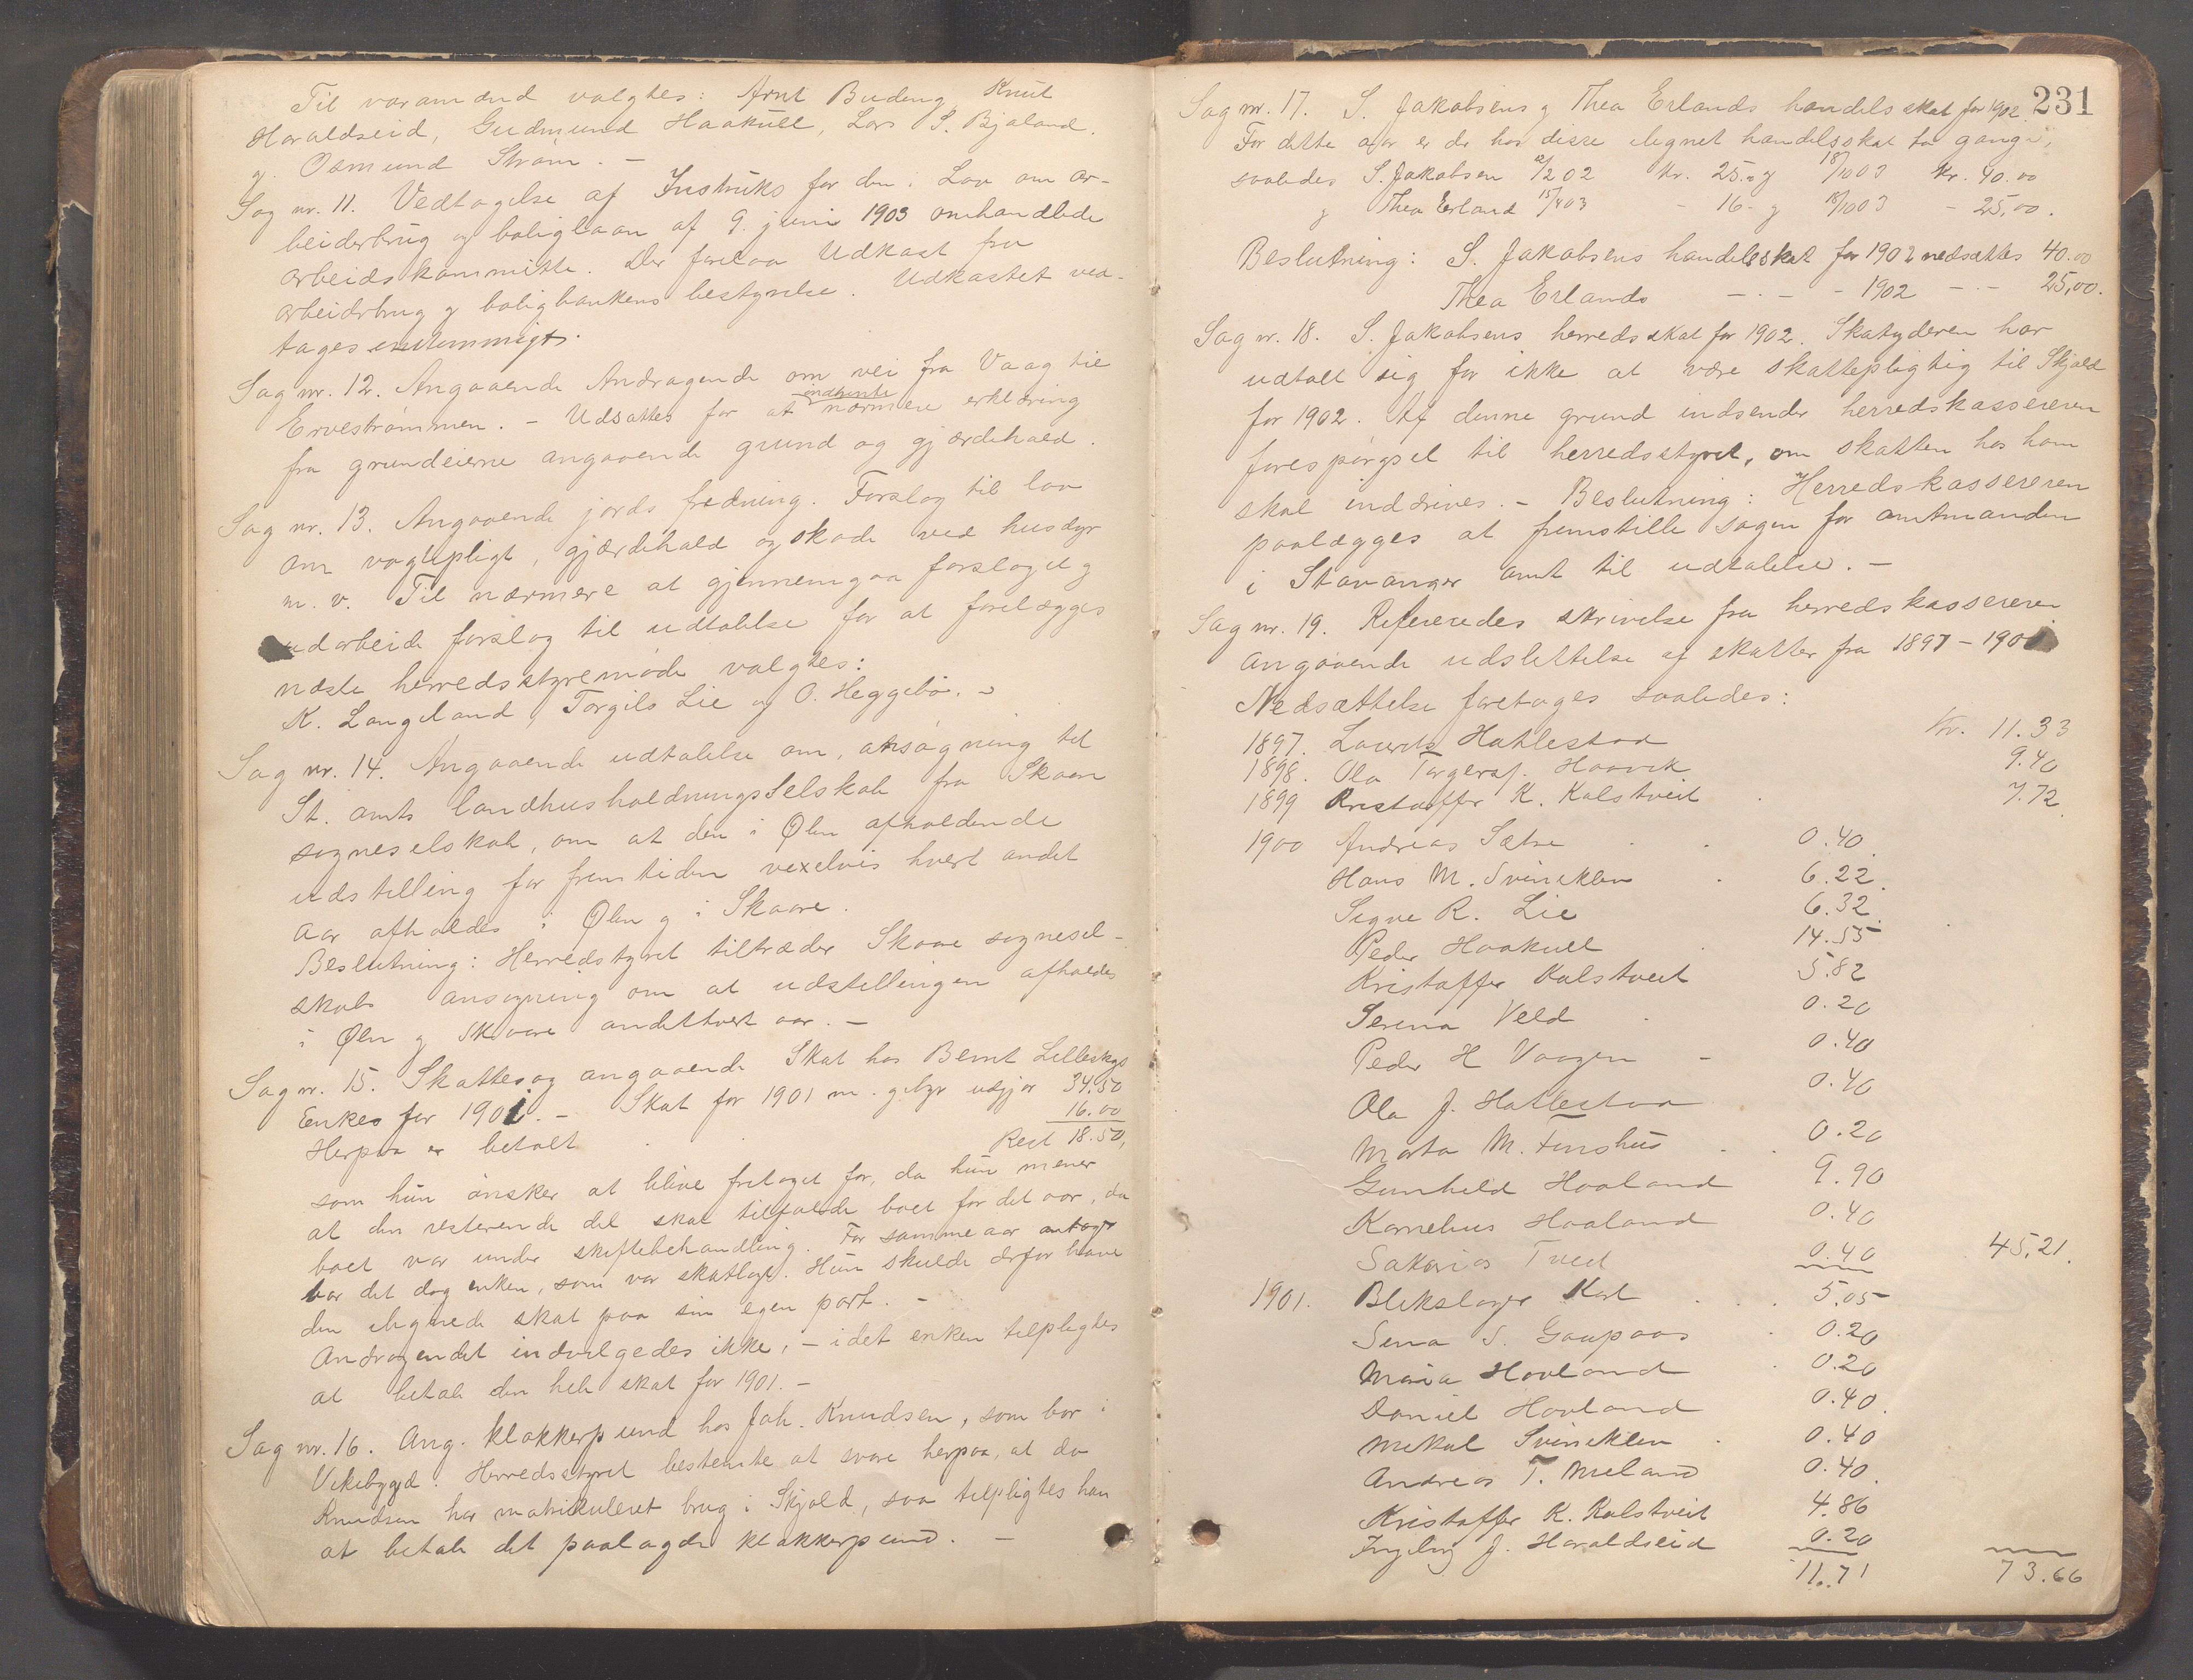 Til varamænd valgtes: Arnt Buding Knut
Haraldseid, Gudmund Haakull, Lars S. Bjøland.
g. Osmund Strøm. —
Sag nr. 11. Vedtagelse af Instruks for den i Lov om ar-
beiderbrug og boliglaan af 9. juni 1903 omhandlede
arbeidskommitte. Der forelaa Udkast fra
arbeiderbrug g boligbankens bestyrelse. Udkastet ved-
tages enstemmigt.
Sag nr. 12. Angaaende Andragende om vei fra Vaag til
Ervestrømmen. – Udsattes for at indhente nærmere erklæring
fra grundeierne angaaende grund og gjærdehold.
Sag nr. 13. Angaaende jords fredning. Forslag til lov
om vogtepligt, gjærdehald og skade ved husdyr
m. v. Til nærmere at gjennemgaa forslaget g
udarbeide forslag til udtalelse for at forelægges
næste herredsstyremøde valgtes:
K. Langeland, Torgils Lie og O. Heggebø. –
Sag nr. 14. Angaaende udtalelse om, ansøgning til
St. amts landhusholdningsselskab fra Skaare
sogneselskab, om at den i Ølen afholdende
udstilling for fremtiden vexelvis hvert andet
aar afholdes i Ølen g i Skaare.
Beslutning: Herredstyret tiltræder Skaare sognesel-
skabs ansøgning om at udstillingen afholdes
i Ølen g Skaare andethvert aar. —
Sag nr. 15. Skattesag angaaende Skat hos Bernt Lilleskogs
Enkes for 1901. – Skat for 1901 m. gebyr udgjør 34.50
Herpaa er betalt 16.00
Rest 18.50,
som hun ønsker at blive fritaget for, da hun mener
at den resterende del skal tilfalde boet for det aar, da
boet var under skiftebehandling. For samme aar antoges
var det dog enken, som var skatlagt. Hun skulde derfor have
den lignede skat paa sin egen part. –
Andragendet indvilgedes ikke, – idet enken tilpligtes
at betale den hele skat for 1901. –
Sag nr. 16. Ang. klokkerpund hos Joh. Knudsen, som bor i
Vikebygd. Herredsstyret bestemte at svare herpaa, at da
Knudsen har matrikuleret brug i Skjold, saa tilpligtes han
at betale det paalagde klokkerpund. —
231
Sag nr. 17. S. Jakobsens g Thea Erlands handelsskat for 1902.
For dette aar er der hos disse lignet handelsskat to gange,
saaledes S. Jakobsen /2 02 Kr. 25.– g 18/10 03 Kr. 40.00
g Thea Erland 15/4 03 – 16– g 18/10 03 – 25,00.
Beslutning: S. Jakobsens handelsskat for 1902 nedsættes 40.00
Thea Erlands – . – – 1902 – . – 25,00.
Sag nr. 18. S. Jakobsens herredsskat for 1902. Skatyderen har
udtalt sig for ikke at være skattepligtig til Skjold
for 1902. Af denne grund indsender herredskassereren
forespørgsel til herredsstyret, om skatten hos ham
skal inddrives. – Beslutning: Herredskassereren
paalægges at fremstille sagen for amtmanden
i Stavanger amt til udtalelse. –
Sag nr. 19. Refereredes skrivelse fra herredskassereren
angaaende udslettelse af skatter fra 1897 – 1901.
Nedsættelse foretages saaledes:
1897. Laurits Hatlestad Kr. 11.33
1898. Ola Torgersf. Haavik 9.40
1899 Kristoffer K. Kalstveit 7.72
1900 Andreas Sætre 0.40
Hans M. Svineklen 6.22
Signe R. Lie 6.32
Peder Haakull 14.55
Kristoffer Kalstveit 5.82
Serina Veld 0.20
Peder H Vaagen – 0.40
Ola J. Hatlestad 0.40
Marta M. Finshus 0.20
Gunhild Haaland 9.90
Kornelius Haaland 0.40
Sakarias Tveit 0.40 45,21.
1901. Blikslager Kart 5.05
Sena S. Gaupaas 0.20
Maria Hovland 0.20
Daniel Hovland 0.40
Mikal Svineklen 0.40
Andreas T. Meland 0.40
Kristoffer K. Kalstveit 4.86
Ingeborg J. Haraldseid 0.20
11.71 73.66